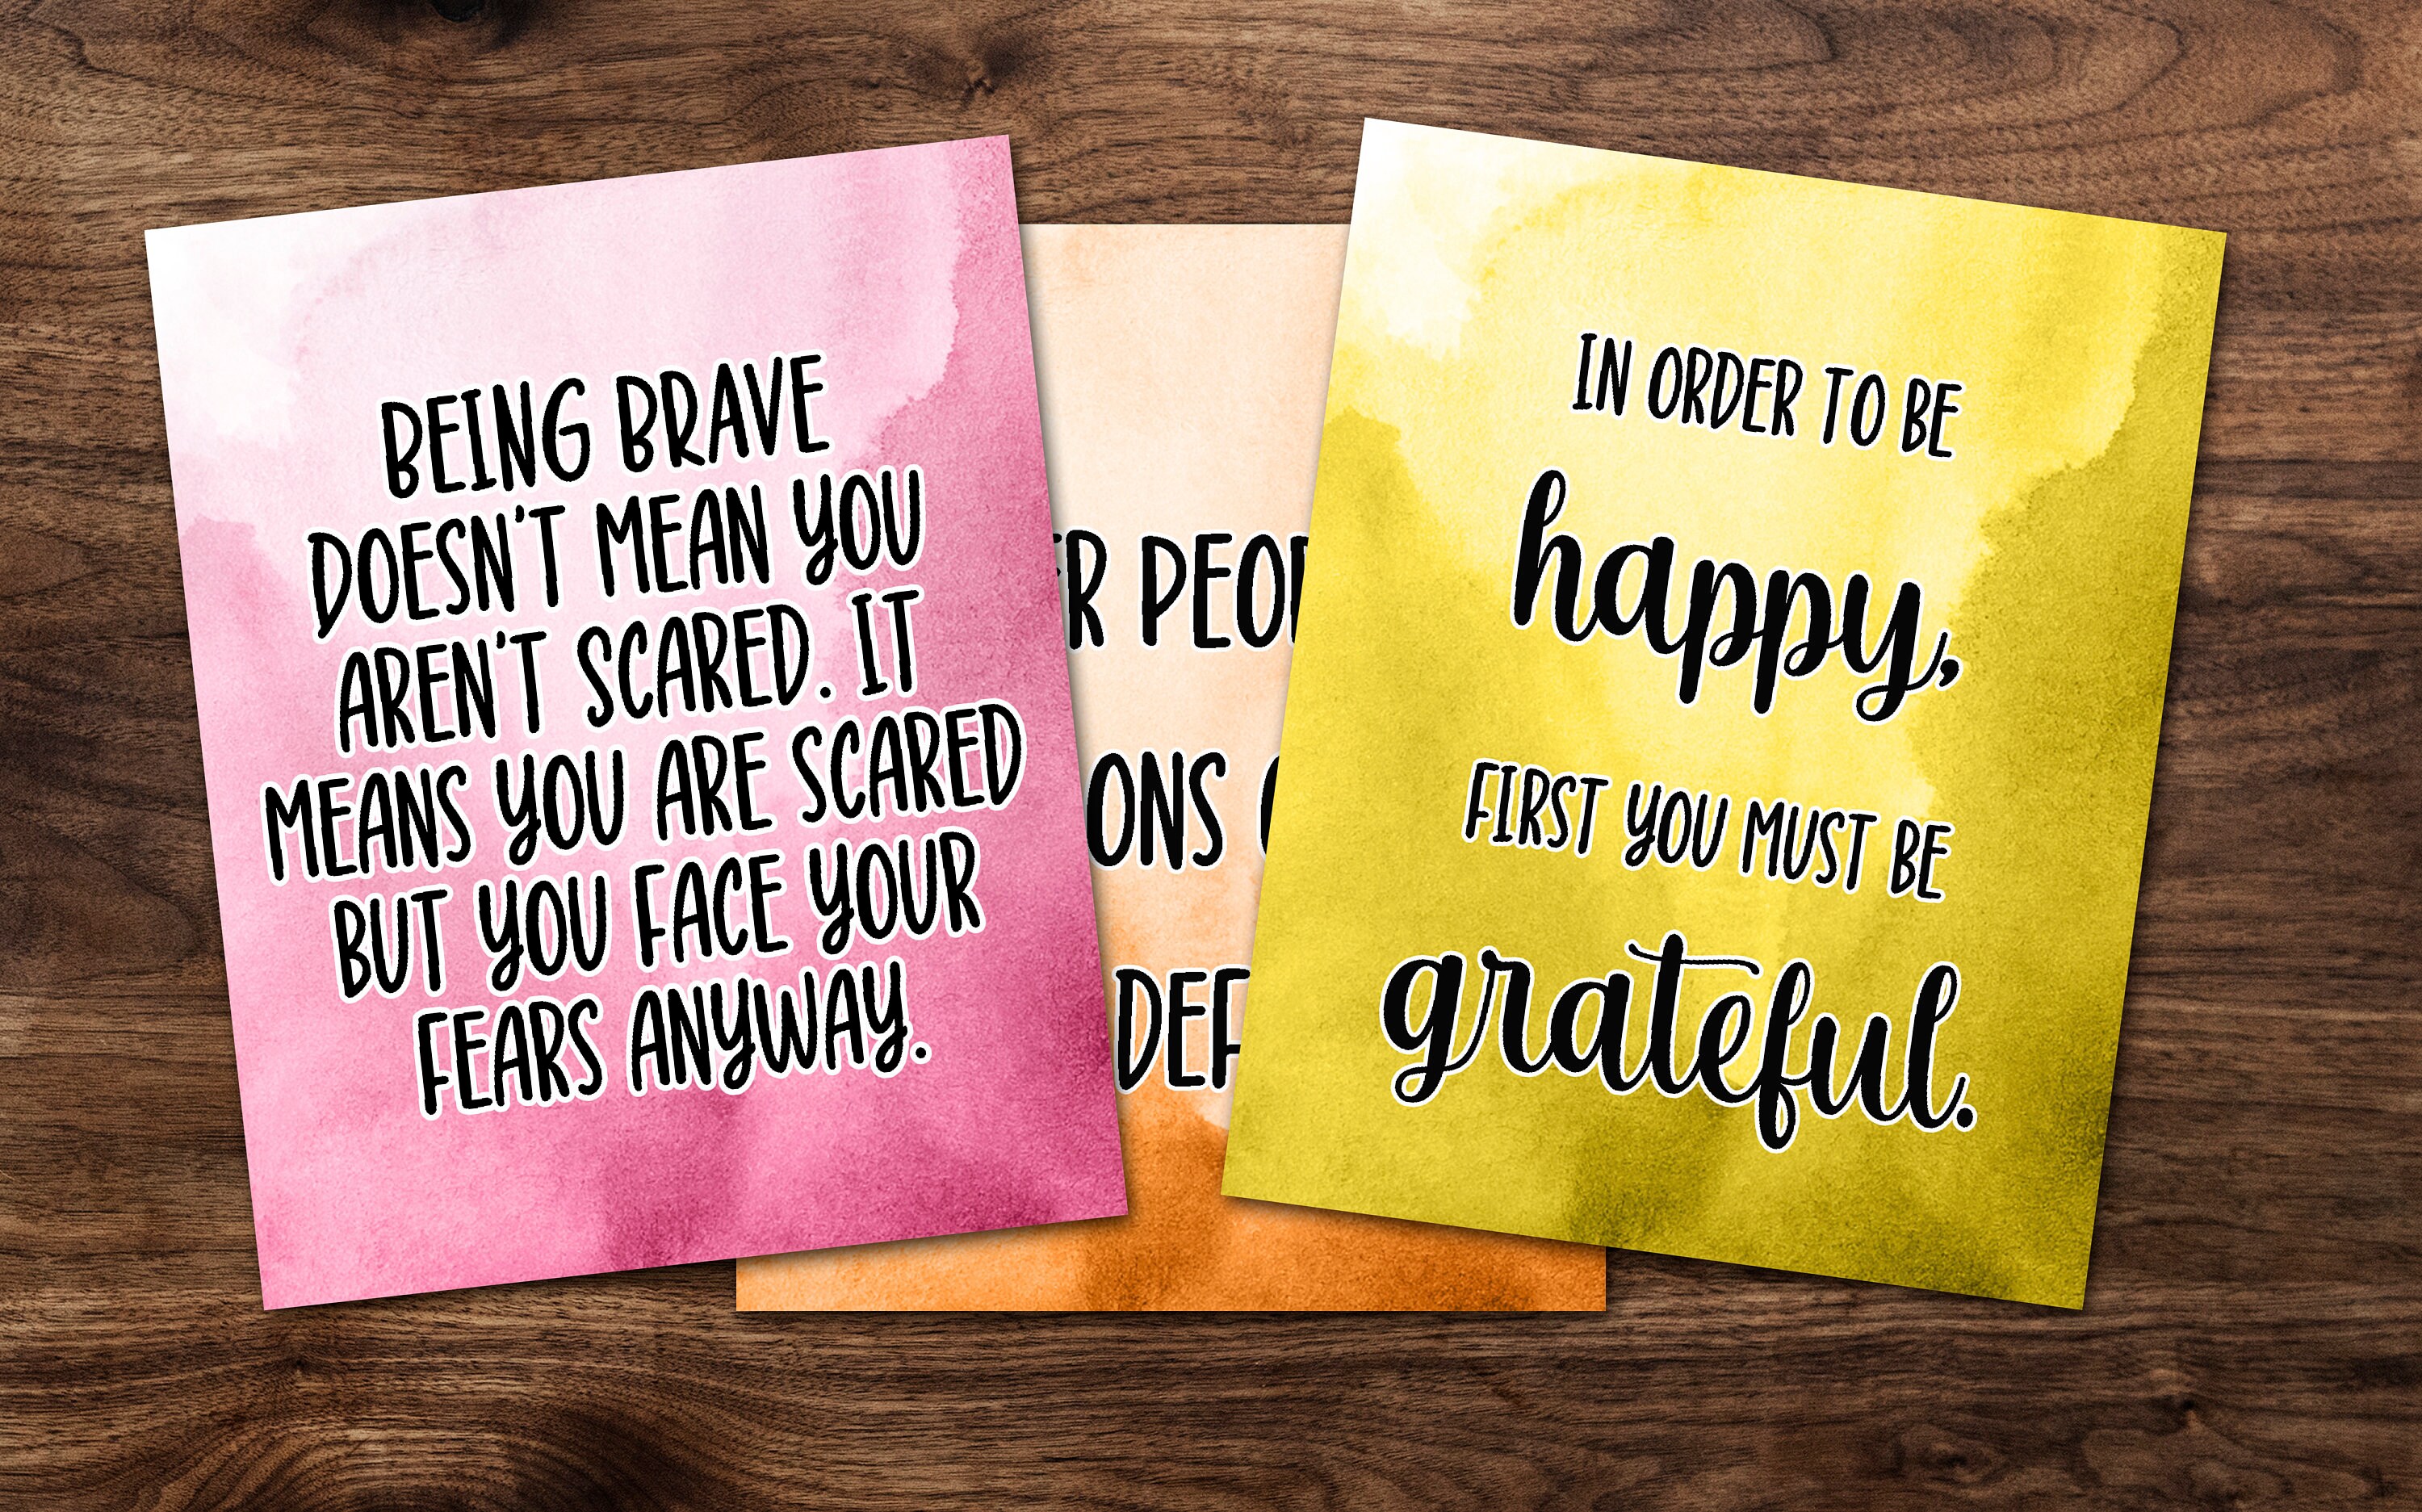 BEING BRAVE
DOESN'T MEAN YOU
AREN'T SCARED. IT
MEANS YOU ARE SCARED
BUT YOU FACE YOUR
FEARS ANYWAY.
IN ORDER TO BE
happy,
FIRST YOU MUST BE
grateful.